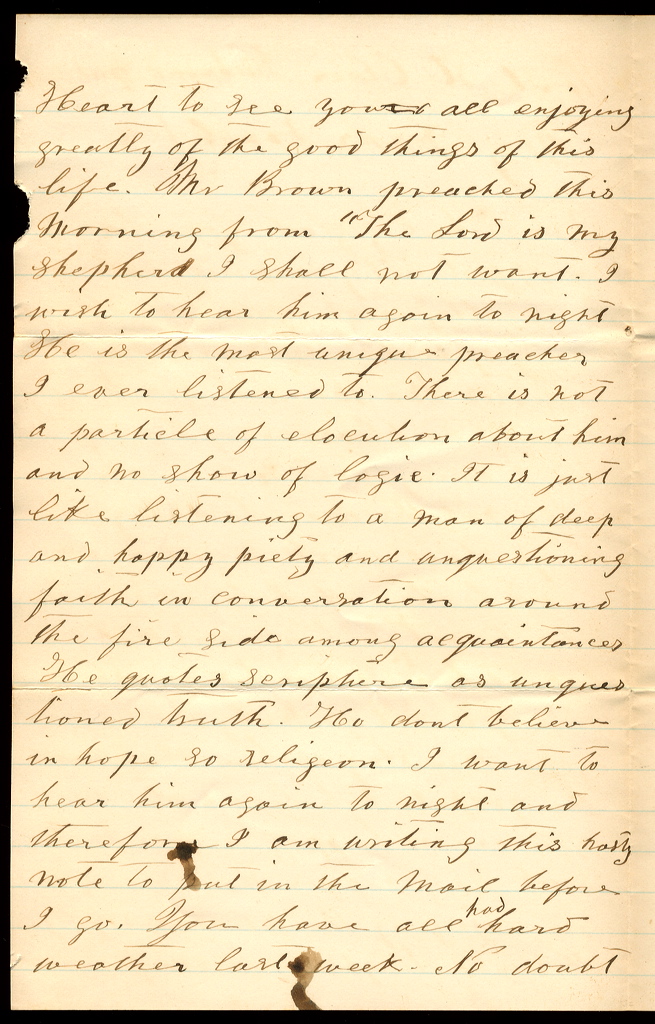 Heart to see you all enjoying
greatly of the good things of this
life. Mr Brown preached this
Morning from "The Lord is my
shepherd I shall not want. I
wish to hear him again to night
He is the most unique preacher
I ever listened to. There is not
a particle of elocution about him
and no show of logic. It is just
like listening to a man of deep
and happy piety and unquestioning
faith in conversation around
the fire side among acquaintances
He quotes scripture as unques
tioned truth. Ho dont believe
in hope so religeon. I want to
hear him again to night and
therefore I am writing this hasty
note to put in the Mail before
I go. You have all had hard
weather last week. No doubt